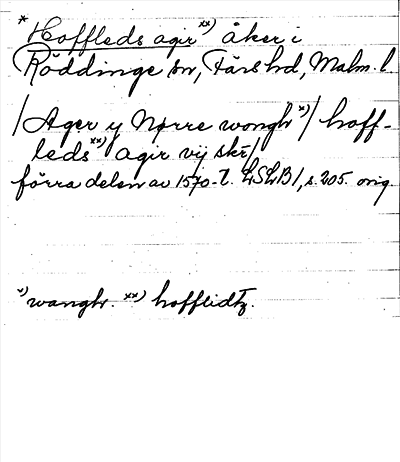 * Hoffleds agir xx) åker i
Röddinge sn, Färs hd, Malm. l.
/Ager y Nørre wongh x)/ hoff-
leds xx) agir vij skr/
förra delen av 1570-t. LSLB1, s. 205. orig.
x) wangh. xx) hofflidtz.